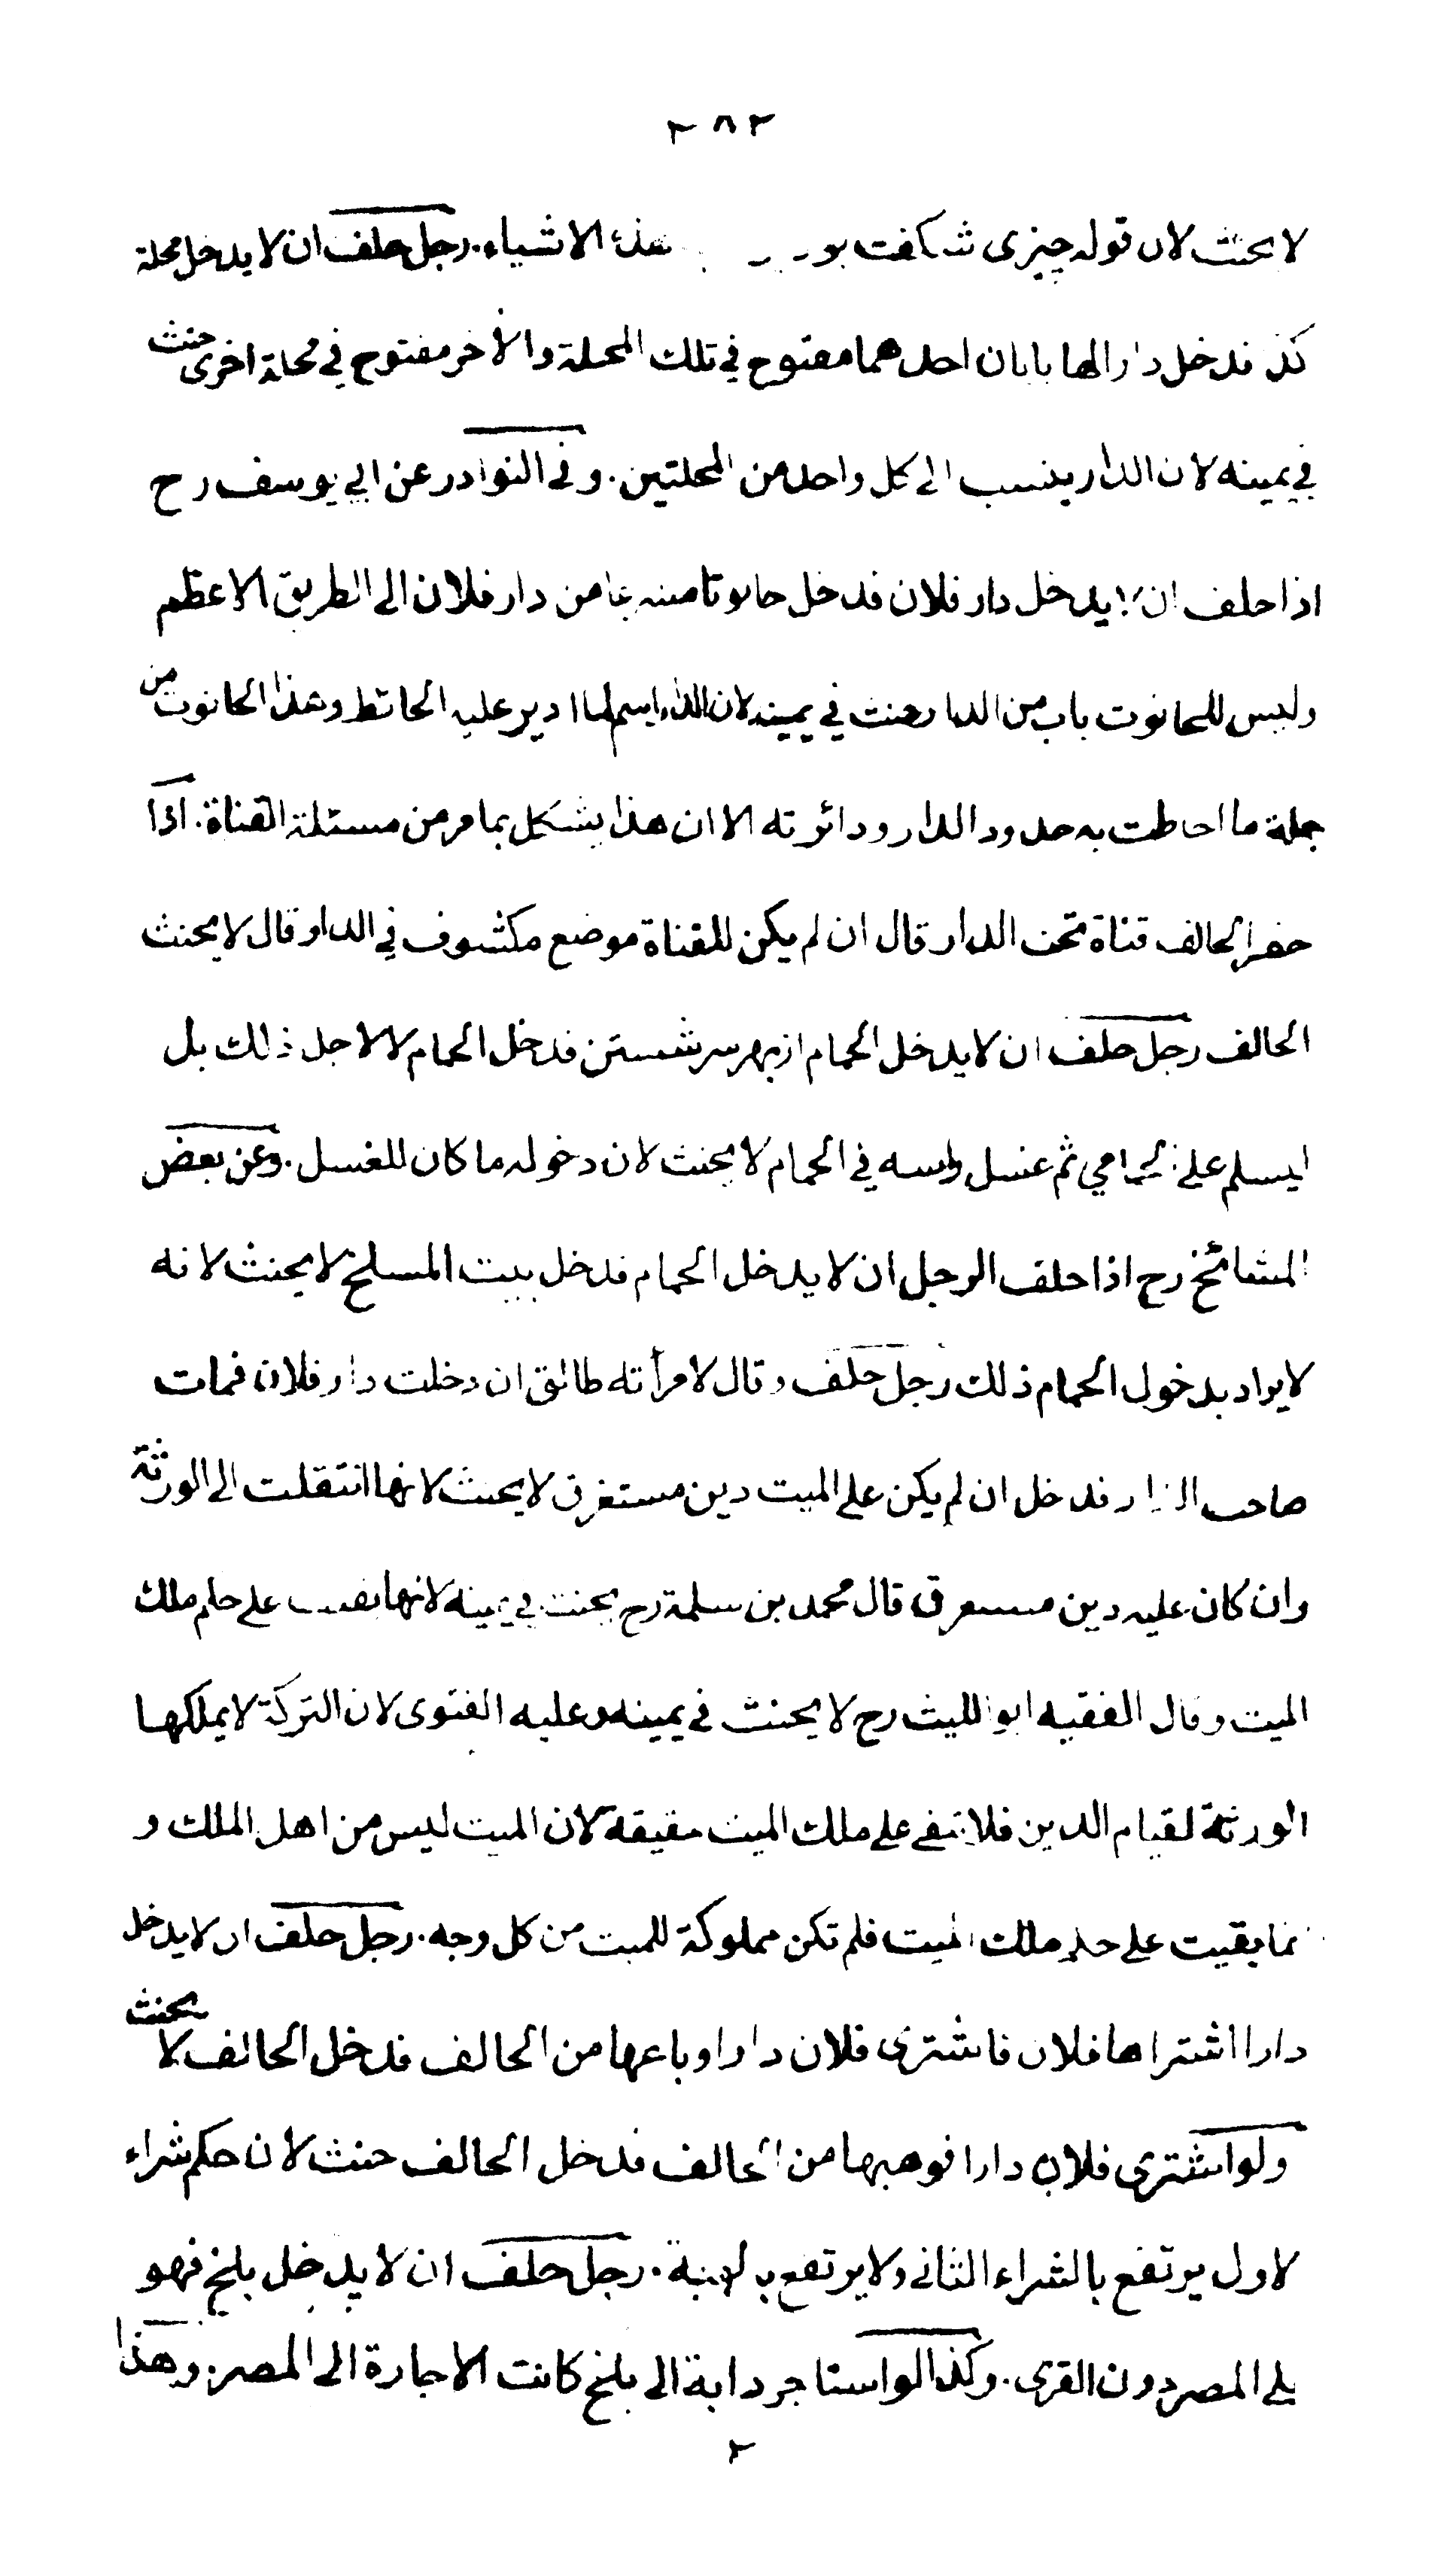 ٢٨٢
لا يحنث لان قوله چيزى شگفت هذه الاشياء. رجل حلف ان لا يدخل محلة
كذا فدخل دارا لها بابان احدهما مفتوح في تلك المحلة والآخر مفتوح في محلة اخرى حنث
في يمينه لان الدار ينسب الى كل واحد من المحلتين. وفى النوادر عن ابي يوسف رح
اذا حلف ان لا يدخل دار فلان فدخل حانوتا من دار فلان الى الطريق الاعظم
وليس للحانوت باب من الدار حنث في يمينه لان الدار اسم لما ادير عليه الحائط وهذا الحانوت من
جملة ما احاطت به حدود الدار ودائرته الا ان هذا يشكل بما مر من مسئلة القناة. اذا
حفر الحالف قناة تحت الدار قال ان لم يكن للقناة موضع مكشوف في الدار قال لا يحنث
الحالف رجل حلف ان لا يدخل الحمام از بهر سر شستن فدخل الحمام لا لاجل ذلك بل
ليسلم على الحمامي ثم غسل راسه في الحمام لا يحنث لان دخوله ما كان للغسل. وعن بعض
المشائخ رح اذا حلف الرجل ان لا يدخل الحمام فدخل بيت المسلخ لا يحنث لانه
لا يراد بدخول الحمام ذلك رجل حلف وقال لامرأته طالق ان دخلت دار فلان فمات
صاحب الدار فدخل ان لم يكن على الميت دين مستغرق لا يحنث لانها انتقلت الى الورثة
وان كان عليه دين مستغرق قال محمد بن سلمة رح يحنث في يمينه لانها بقيت على حكم ملك
الميت وقال الفقيه ابو الليث رح لا يحنث في يمينه وعليه الفتوى لان التركة لا يملكها
الورثة لقيام الدين فلا تبقى على ملك الميت حقيقة لان الميت ليس من اهل الملك و
انما بقيت على حكم ملك الميت فلم تكن مملوكة للميت من كل وجه. رجل حلف ان لا يدخل
دارا اشتراها فلان فاشترى فلان دارا وباعها من الحالف فدخل الحالف لا يحنث
ولو اشترى فلان دارا فوهبها من الحالف فدخل الحالف حنث لان حكم شراء
لاول يرتفع بالشراء الثانى ولا يرتفع بالهبة. رجل حلف ان لا يدخل بلخ فهو
على المصر دون القرى. وكذا لو استاجر دابة الى بلخ كانت الاجارة الى المصر. وهذا
٢